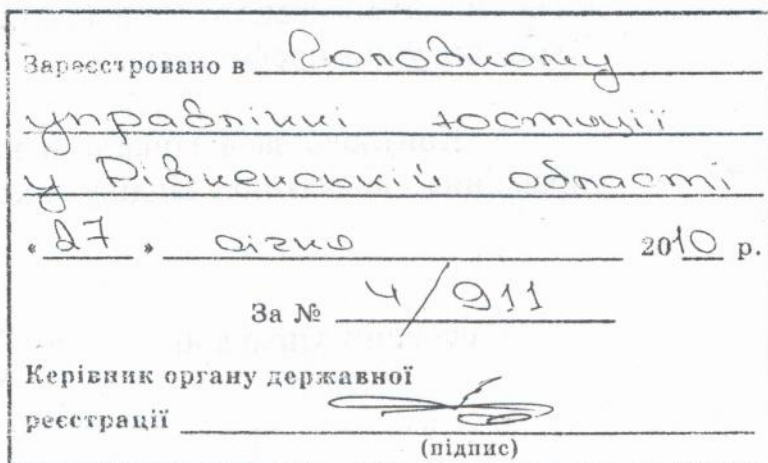 Зареєстровано в Головному
управлінні юстиції
у Рівненській області
« 27 » січня 2010 р.
За № 4/911
Керівник органу державної
реєстрації
(підпис)